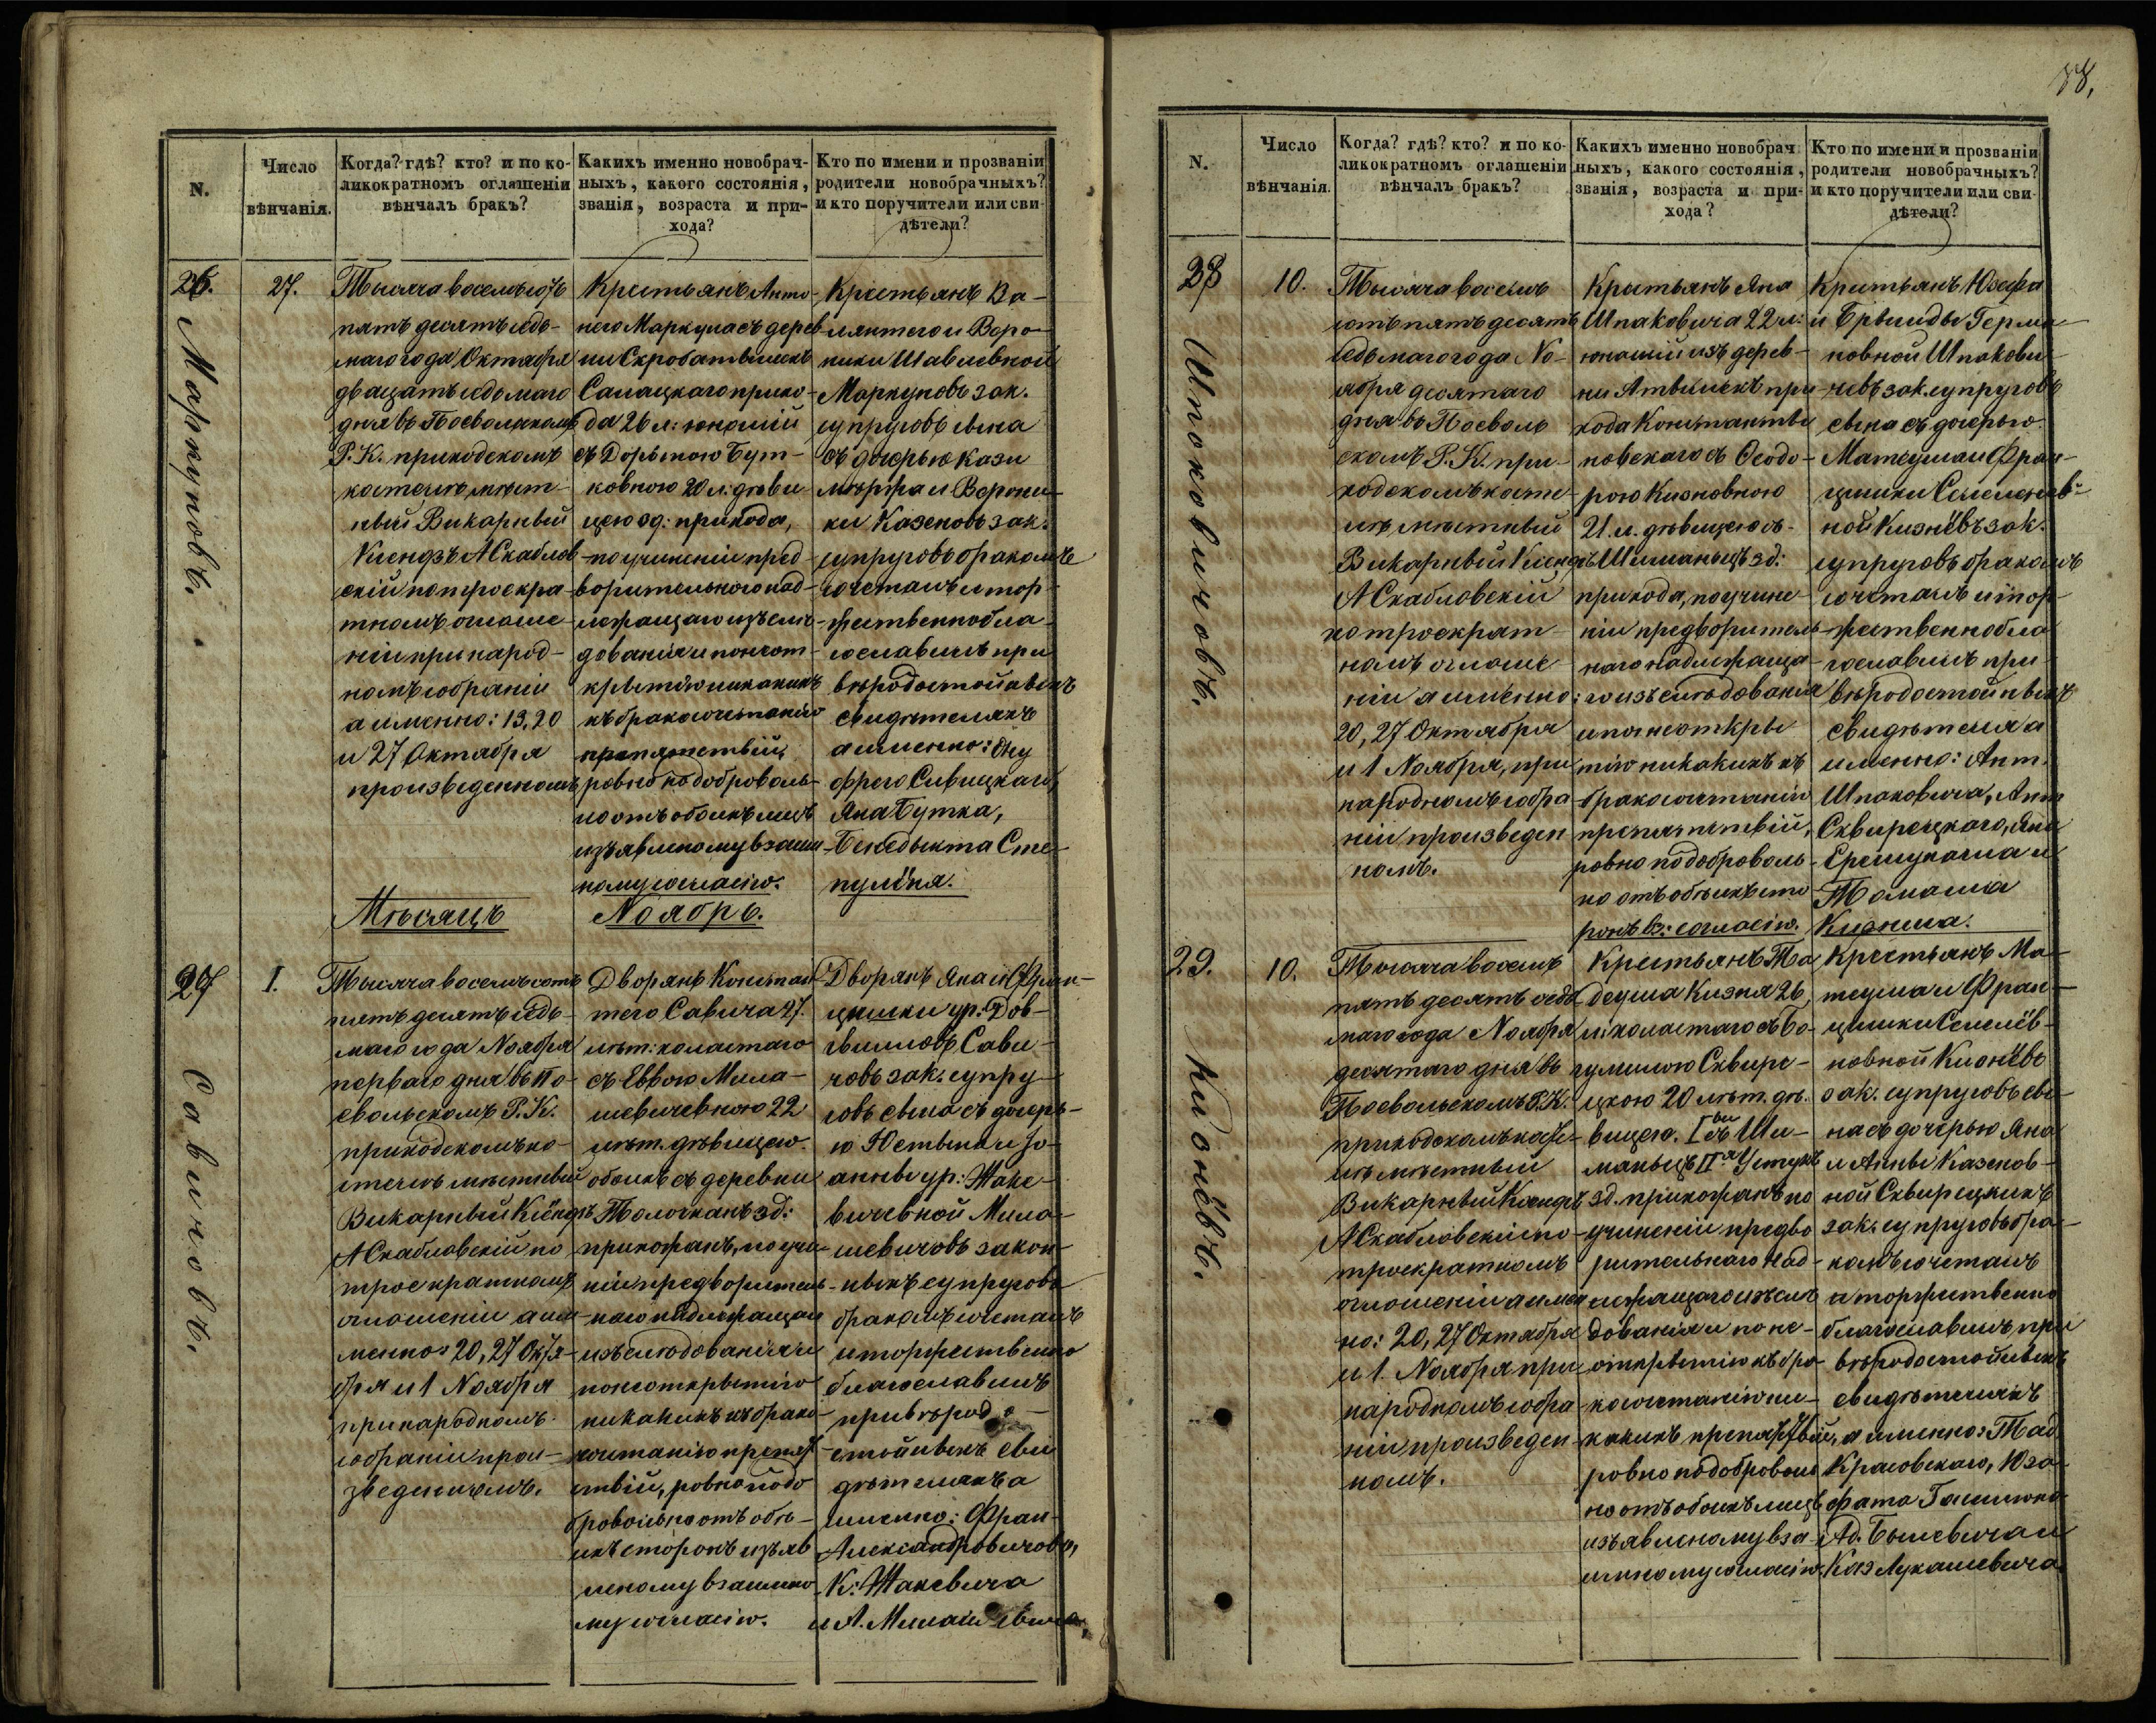 88.
N.
Число
вѣнчанія.
Когда? гдѣ? кто? и по ко-
ликократномъ оглашеніи
вѣнчалъ бракъ?
Какихъ именно новобрач-
ныхъ, какого состоянія,
званія, возраста и при-
хода?
Кто по имени и прозванію
родители новобрачныхъ?
и кто поручители или сви-
дѣтели?
26.
Маркуновъ.
27.
Тысяча восемьсотъ
пятьдесятъ седь-
маго года Октября
двацать седьмаго
дня въ Поевольскомъ
Р. К. приходскомъ
костелѣ мѣст-
ный Викарный
Ксендзъ А Скаблов
скій по троекра-
тномъ оглаше-
ніи при народ-
номъ собраніи
а именно: 13, 20
и 27 Октября
произведенномъ
Крестьянъ Анто-
него Маркуна съ дерев
ни Скробатвишекъ
Салацкаго прихо-
да 26 л: юношій
съ Доротою Бут-
ковною 20 л: дѣви-
цею зд: прихода,
по учиненіи пред-
ворительнаго над-
лежащаго изслѣ-
дованія и понеот-
крытію никакихъ
къ бракосочетанію
препятствій
ровно подоброволь-
но отъ обоихъ лицъ
изъявленому взаим-
ному согласію.
Крестьянъ Ва-
лянтего и Веро-
ники Шавлевной
Маркуновъ зак.
супруговъ сына
съ дочерью Кази
мѣржа и Верони-
ки Казеновъ зак.
супруговъ бракомъ
сочеталъ и тор-
жественно бла-
гословилъ при
вѣродостойныхъ
свидѣтеляхъ
а именно: Ону
фрего Сивицкаго,
Яна Бутка,
Бенедыкта Сте-
пулёна.
Мѣсяцъ Ноябрь.
27
Савичовъ.
1.
Тысяча восемьсотъ
пятьдесятъ седь-
маго года Ноября
перваго дня въ По-
евольскомъ Р. К.
приходскомъ ко-
стелѣ мѣстный
Викарный Ксёндзъ
А Скабловскій по
троекратномъ
оглошеніи а им-
менно: 20, 27 Октя-
бря и 1 Ноября
при народномъ
собраніи прои-
зведенномъ.
Дворянъ Констан
тего Савича 27.
лѣт: холастаго
съ Еввою Мила-
шевичевною 22
лѣт. дѣвицею
обоихъ съ деревни
Толочканъ зд:
прихожанъ, по учи
ніи предворитель-
наго надлежащаи
изслѣдованія и
понеоткрытію
никакихъ къ брако-
сочетанію препят
ствій, ровно подо
бровольно отъ обѣ-
ихъ сторонъ изъяв
леному взаимно
му согласію.
Дворянъ Яна и Фран-
цишки ур: Дов-
гвилловъ Сави-
човъ зак. супру-
говъ сына съ дочерь-
ю Юстына и Іо-
анны ур: Жаке-
вичевной Мила-
шевичовъ закон-
ныхъ супруговъ
бракомъ сочеталъ
и торжественно
благословилъ
при вѣродо-
стойныхъ сви
дѣтеляхъ а
именно: Фран-
Александровичова,
К: Жакевича
и А. Милашевича,
N.
Число
вѣнчанія.
Когда? гдѣ? кто? и по ко-
ликократномъ оглашеніи
вѣнчалъ бракъ?
Какихъ именно новобрач
ныхъ, какого состоянія,
званія, возраста и при-
хода?
Кто по имени и прозваніи
родители новобрачныхъ?
и кто поручители или сви
дѣтели?
28
Шпоковичовъ.
10.
Тысяча восемь
сотъ пятьдесятъ
седьмаго года Но-
ября десятаго
дня въ Поеволь
скомъ Р. К. при-
ходскомъ косте-
лѣ мѣстный
Викарный Ксендзъ
А Скабловскій
по троекрат-
номъ оглоше-
ніи а именно:
20, 27 Октября
и 1 Ноября, при
народномъ собра-
ніи произведен
номъ.
Крестьянъ Яна
Шпаковича 22 л:
юношій изъ дерев-
ни Атвишекъ при-
хода Константы
новскаго съ Ѳеодо-
рою Кизновною
21. л. дѣвицею съ
Шиманецъ зд:
прихода, по учине-
ніи предворитель-
наго надлежаща-
го изъслѣдованія
и понеоткры
тію никакихъ къ
бракосочетанію
препятствій,
ровно подоброволь-
но отъ обѣихъ сто
ронъ вз: согласію.
Крестьянъ Юзефа
и Брыгиды Герма-
новной Шпокови-
чевъ зак. супруговъ
сына съ дочерью
Матеуша и Фран-
цишки Семенов-
ной Кизнёвъ зак.
супруговъ бракомъ
сочеталъ и тор-
жественно бла-
гословилъ при
вѣродостойныхъ
свидѣтеля а
именно: Ант.
Шпаковича, Ант
Сквирецкаго, Яна
Еремуканиа и
Томаша
Кизниа.
29.
Кизнёвъ.
10.
Тысяча восемь
пятьдесятъ седь
маго года Ноября
десятаго дня въ
Поевольскомъ Р. К.
приходскомъ косте-
лѣ мѣстный
Викарный Ксендзъ
А Скабловскій по-
троекратномъ
оглошеніи а имен
но: 20, 27 Октября
и 1. Ноября при
народномъ собра-
ніи произведен-
номъ.
Крестьянъ Та
деуша Кизня 26,
л: холастаго съ Бо-
гумилою Сквире-
цкою 20 лѣт. дѣ-
вицею. I вый съ Ши-
манецъ II я Устукъ
зд. прихожанъ по
учиненіи предво
рительнаго над-
лежащаго изъслѣ
дованія и по не-
открытію къ бра-
косочетанію ни-
какихъ препятствій,
ровно подоброволь
но отъ обоихъ лицъ
изъявленому вза-
имному согласію.
Крестьянъ Ма-
теуша и Фран-
цишки Семелёв-
новной Кизнёвъ
зак. супруговъ сы-
на съ дочерью Яна
и Анны Казенов-
ной Сквирецкихъ
зак. супруговъ бра-
комъ сочеталъ
и торжественно
благословилъ при
вѣродостойныхъ
свидѣтеляхъ
а именно: Тад.
Красовскаго, Юзе-
фата Гашынско
Ад. Бышевича и
Каз Лукашевича